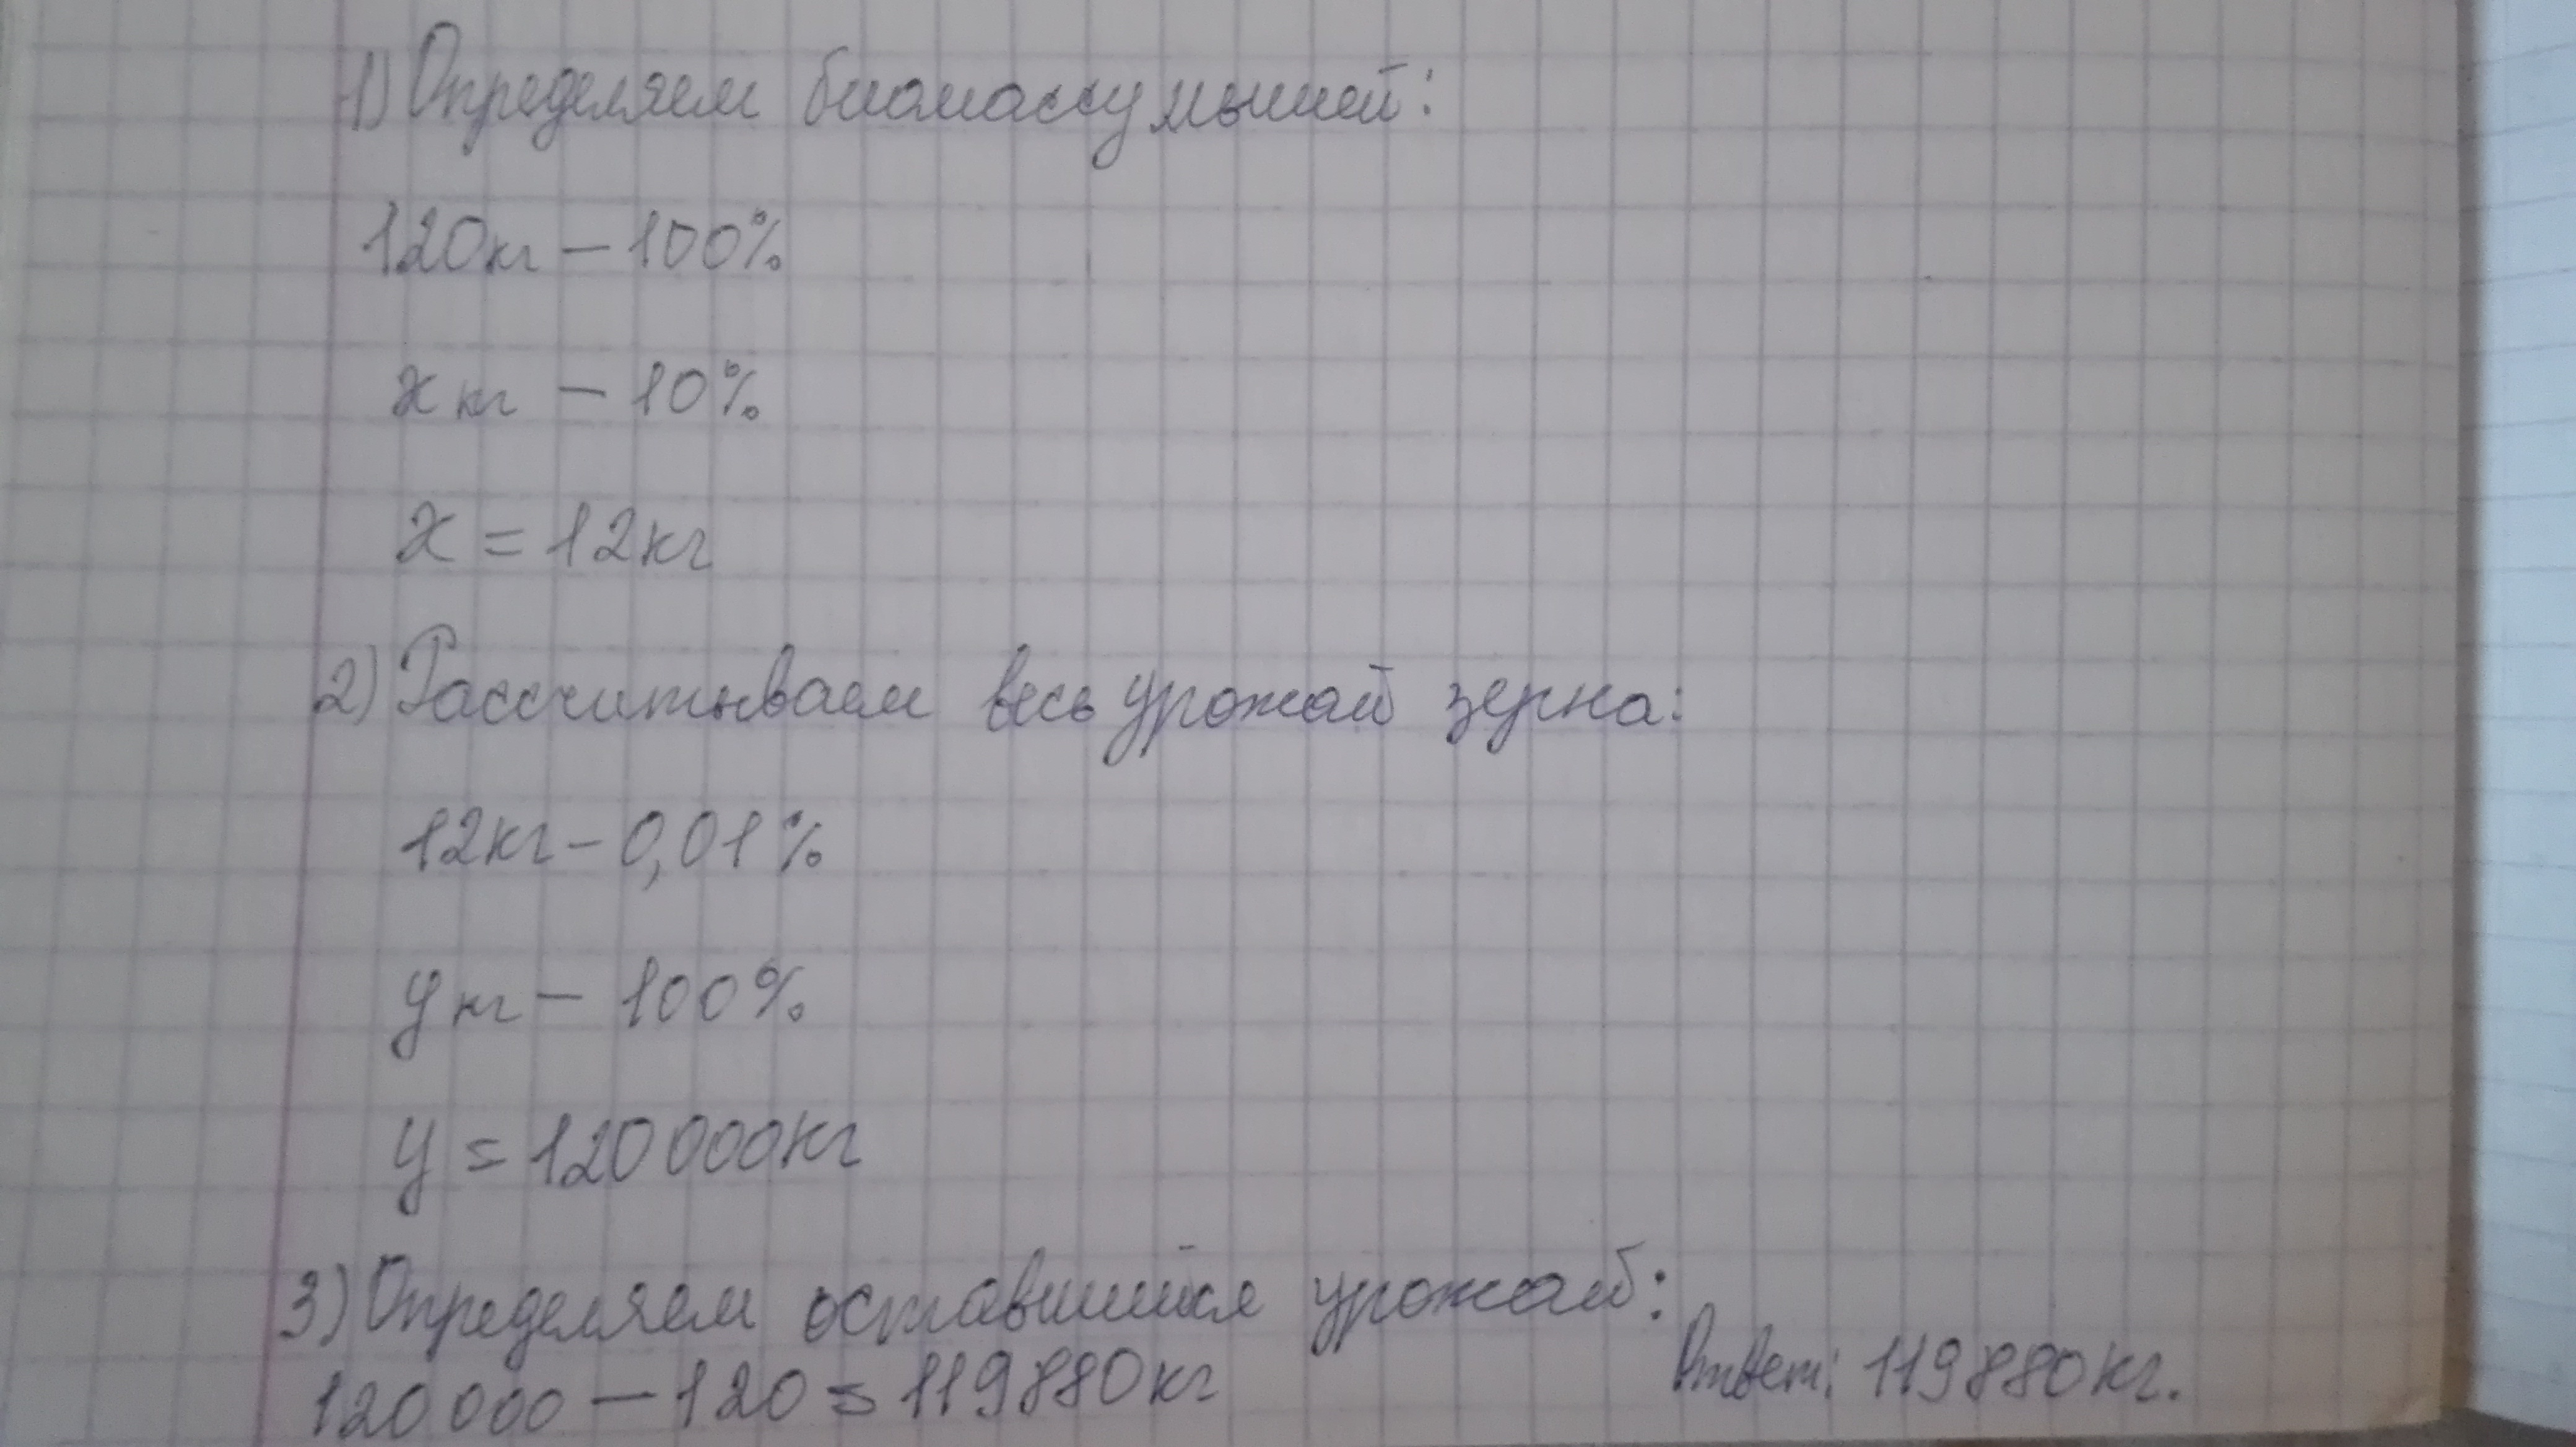 1) Определяем биомассу мышей:
120кг – 100%
x кг – 10%
x = 12кг
2) Рассчитываем весь урожай зерна:
12кг – 0,01%
y кг – 100%
y = 120 000кг
3) Определяем оставшийся урожай:
120 000 – 120 = 119880кг
Ответ: 119880кг.